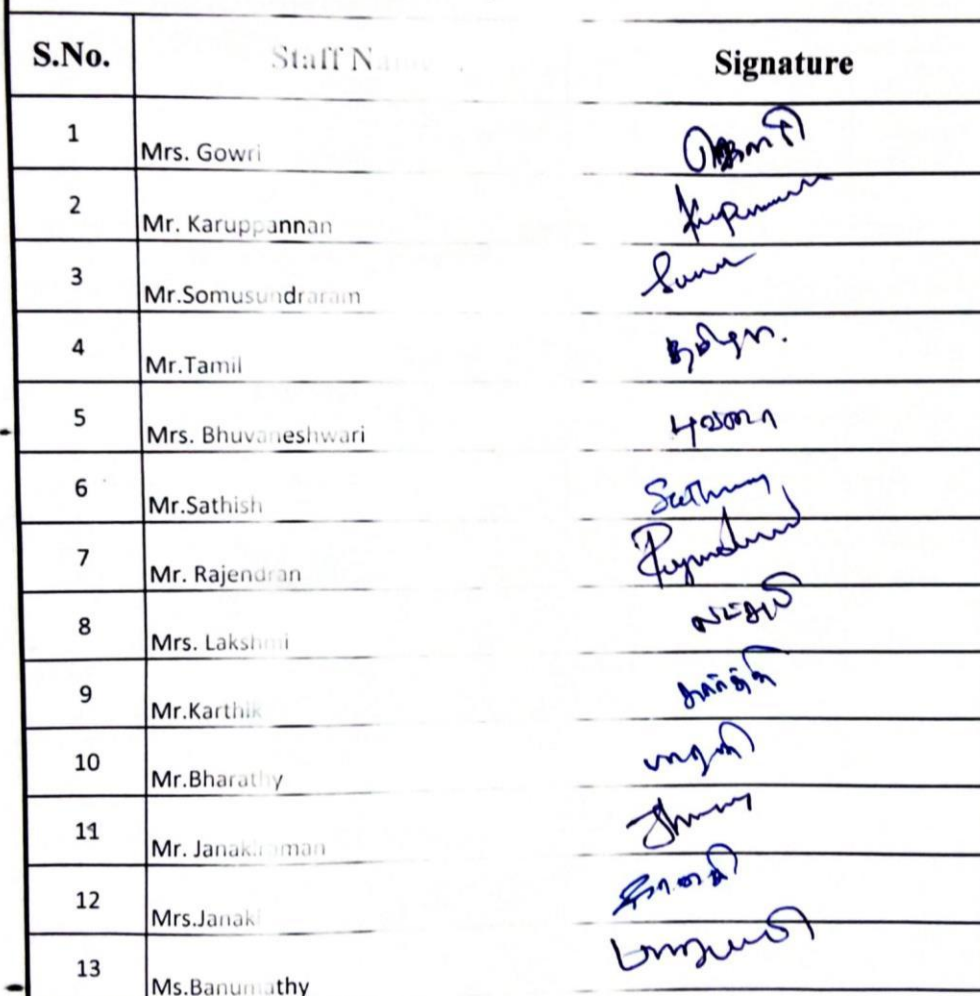 S.No. Staff Name Signature
1 Mrs. Gowri கௌரி
2 Mr. Karuppannan
3 Mr.Somusundraram
4 Mr.Tamil
5 Mrs. Bhuvaneshwari புவனா
6 Mr.Sathish
7 Mr. Rajendran
8 Mrs. Lakshmi லட்சுமி
9 Mr.Karthik கார்த்தி
10 Mr.Bharathy பாரதி
11 Mr. Janakiraman
12 Mrs.Janaki ஜானகி
13 Ms.Banumathy பானுமதி